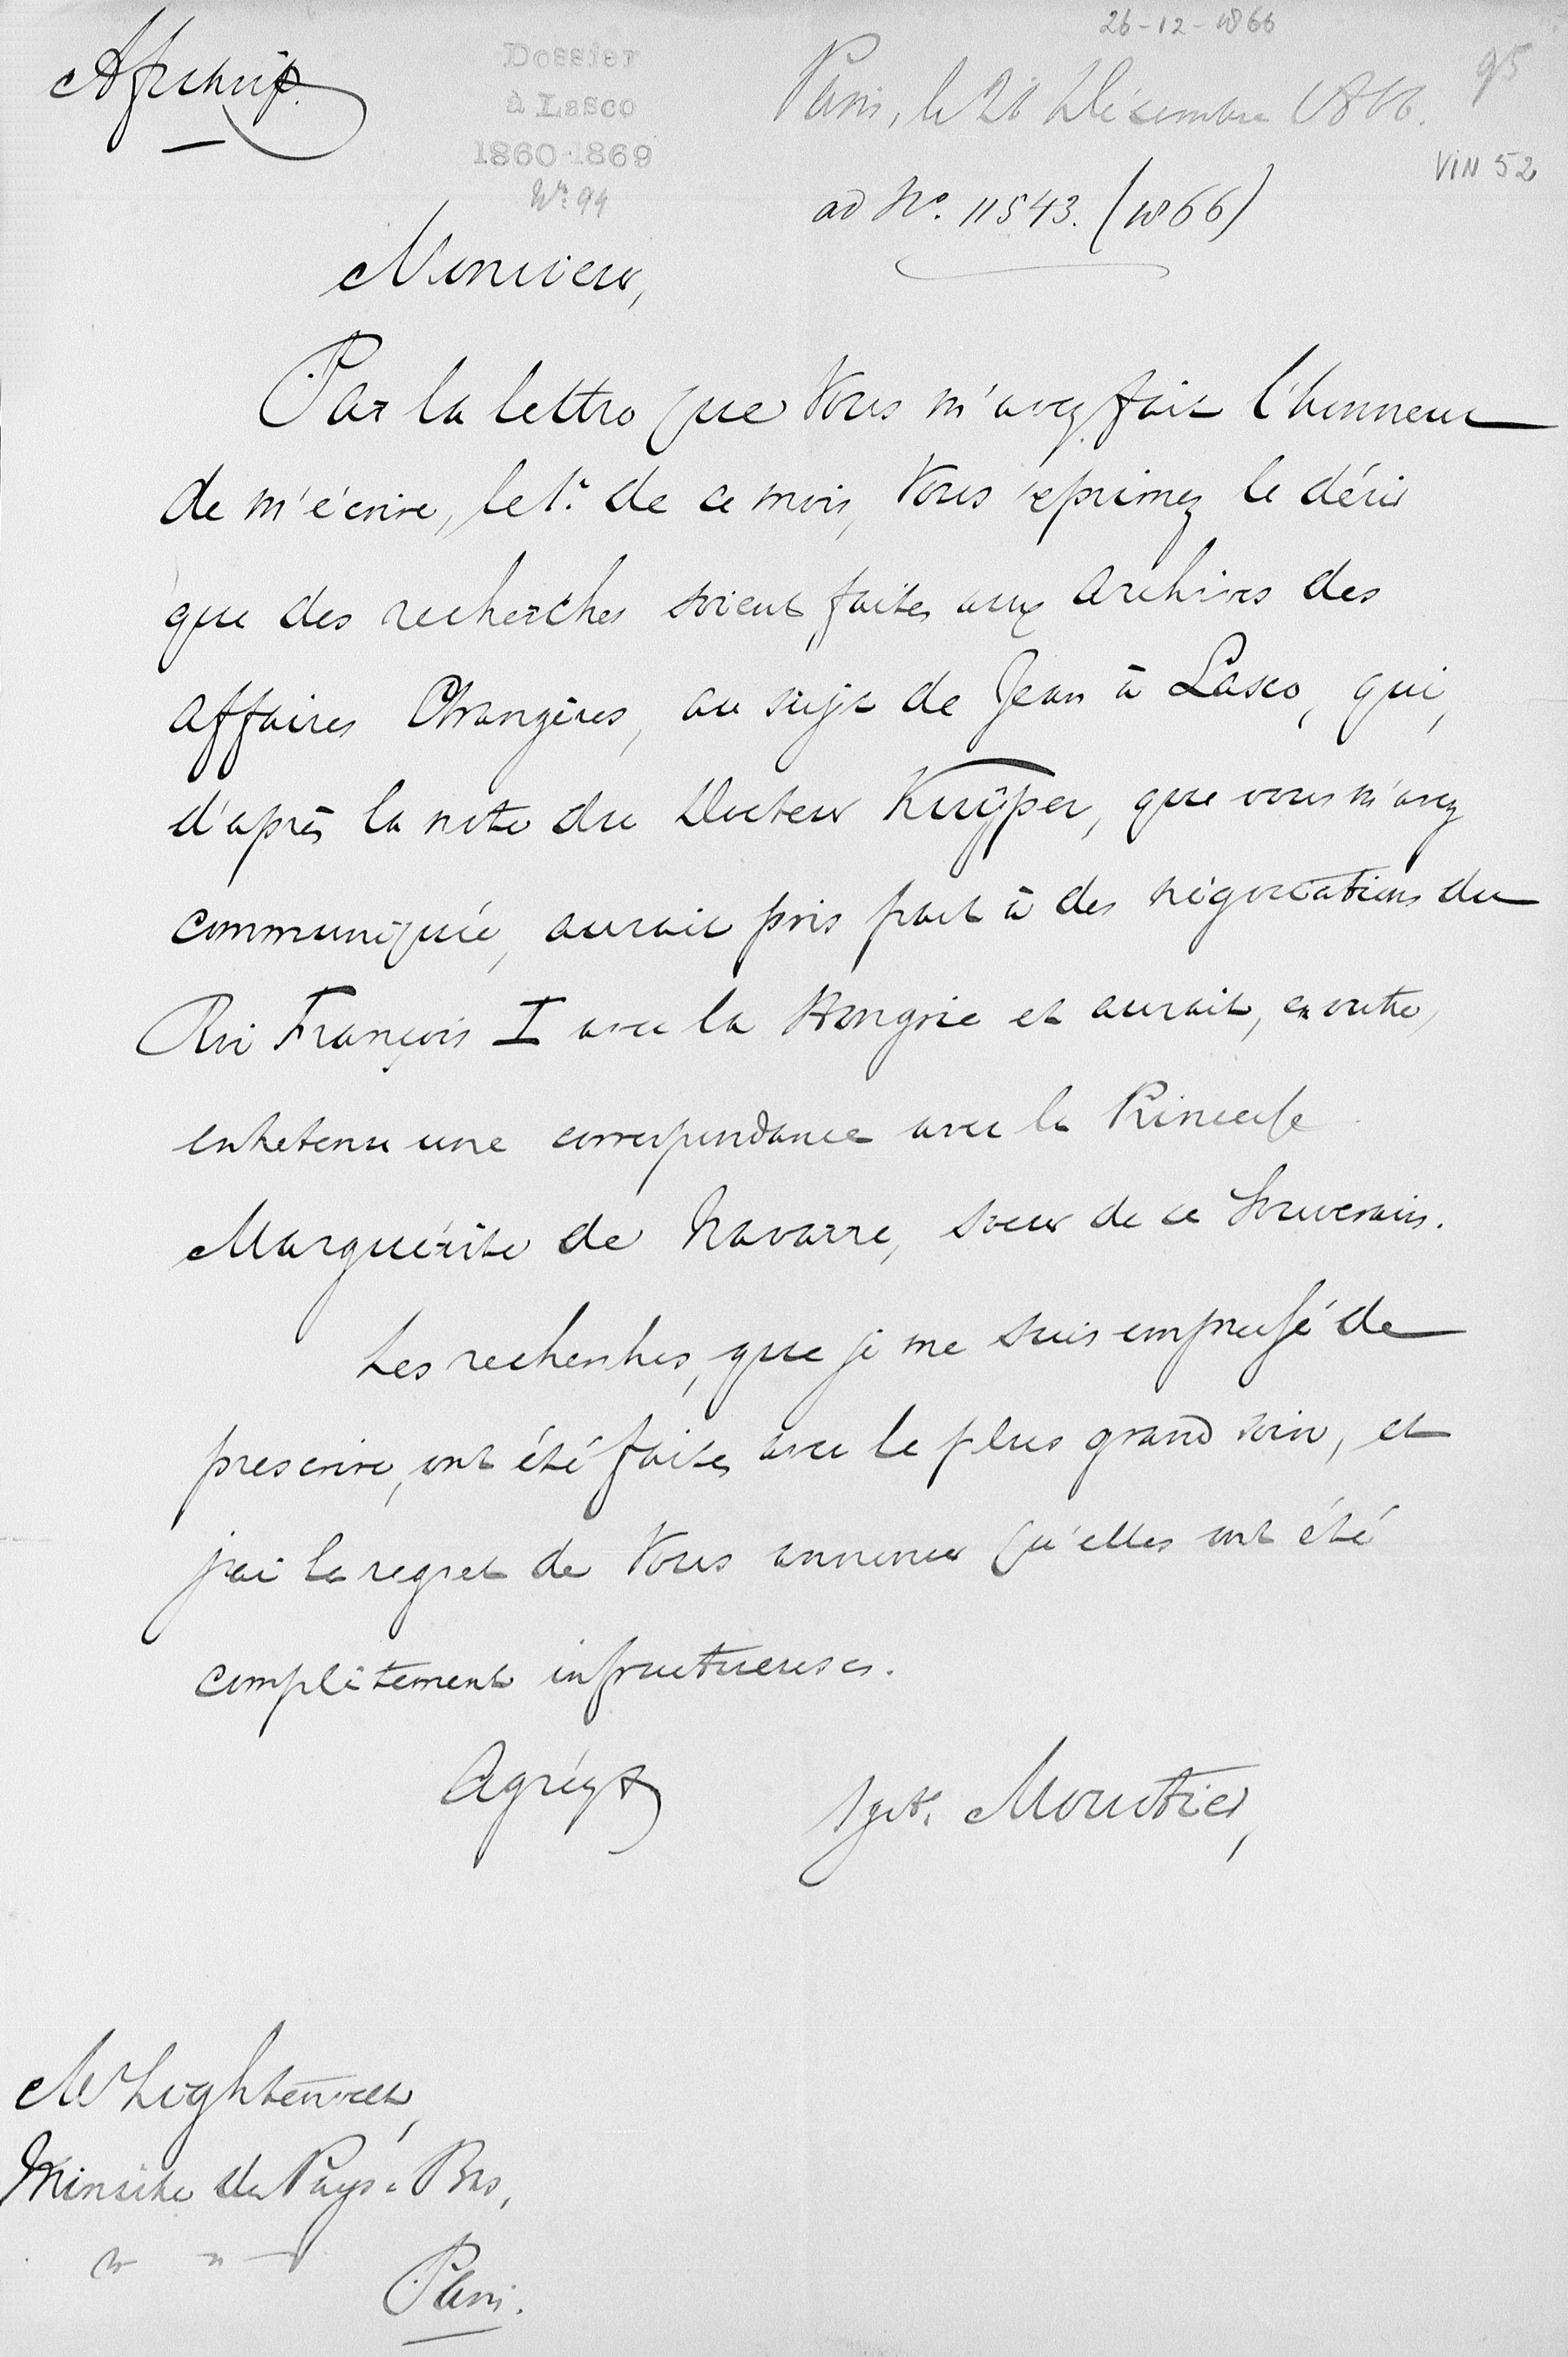 26-12-1866
95
Afschrift.
Dossier
à Lasco
1860-1869
Nr: 94
Paris, le 26 Décembre 1866.
VIN 52
ad No. 11543. (1866)
Monsieur,
Par la lettre que Vous m'avez fait l'honneur
de m'écrire, le 1r. de ce mois, Vous exprimez le désir
que des recherches soient faites aux archives des
affaires Etrangères, au sujet de Jean à Lasco, qui,
d'après la note du Docteur Kuÿper, que vous m'avez
communiquée, aurait pris part à des négociations du
Roi François I avec la Hongrie et aurait, en outre,
entretenu une correspondance avec la Princesse
Marguérite de Navarre, soeur de ce Souverain.
Les recherches, que je me suis empressé de
prescrire, ont été faites avec le plus grand soin, et
j'ai le regret de Vous annoncer qu'elles ont été
complètement infructueuses.
Agréez
sget. Moustier,
Mr Lightenvelt,
Ministre des Pays-Bas,
Paris.